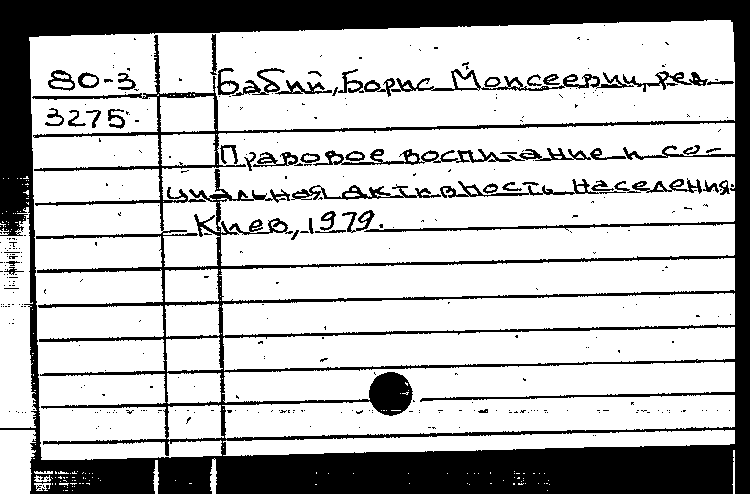 80-3 Бабий, Борис Моисеевич, ред.
3275.
Правовое воспитание и со-
циальная активность населения.
— Киев, 1979.